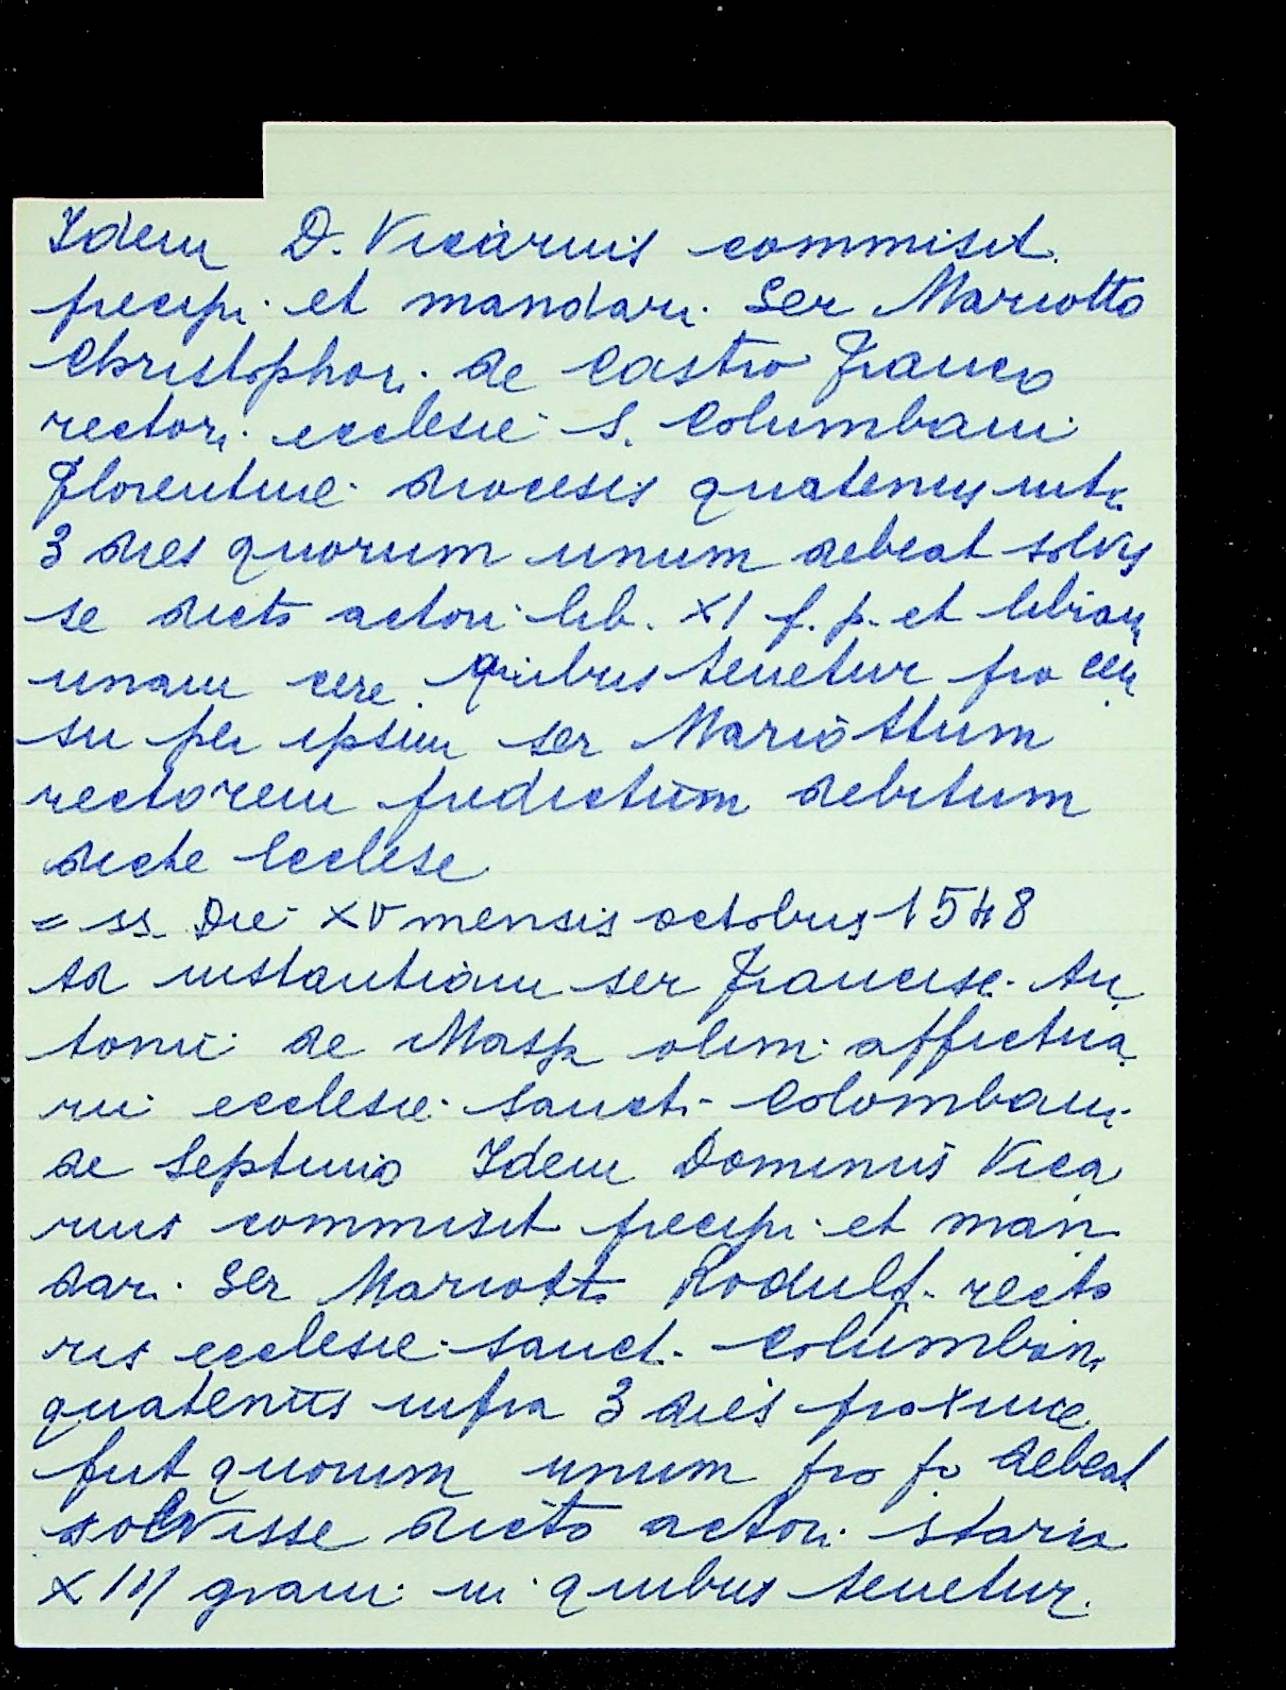 Idem D. Vicarius commisit
precipi et mandari Ser Mariotto
Christophori de Castro Franco
rectori ecclesie S. Columbani
Florentine diocesis quatenus inf.
3 dies quorum unum debeat solvis
se dicto actori lib. XI f. p. et libram
unam cere quibus tenetur pro cen
su per ipsum ser Mariottum
rectorem predictum debitum
dicte Ecclese
= ss. Die XV mensis octobris 1548
ad instantiam ser Francisc. An
tonii de olim affictua
rii ecclesie Sancti Colombani
de Septimo Idem Dominus Vica
rius commisit precipi et man
dari Ser Mariotto Rodulf. recto
ris ecclesie Sancti Columbani
quatenus infra 3 dies proxime
fut quorum unum pro p. debeat
solvisse dicto actori staria
XIIJ grani in quibus tenetur.